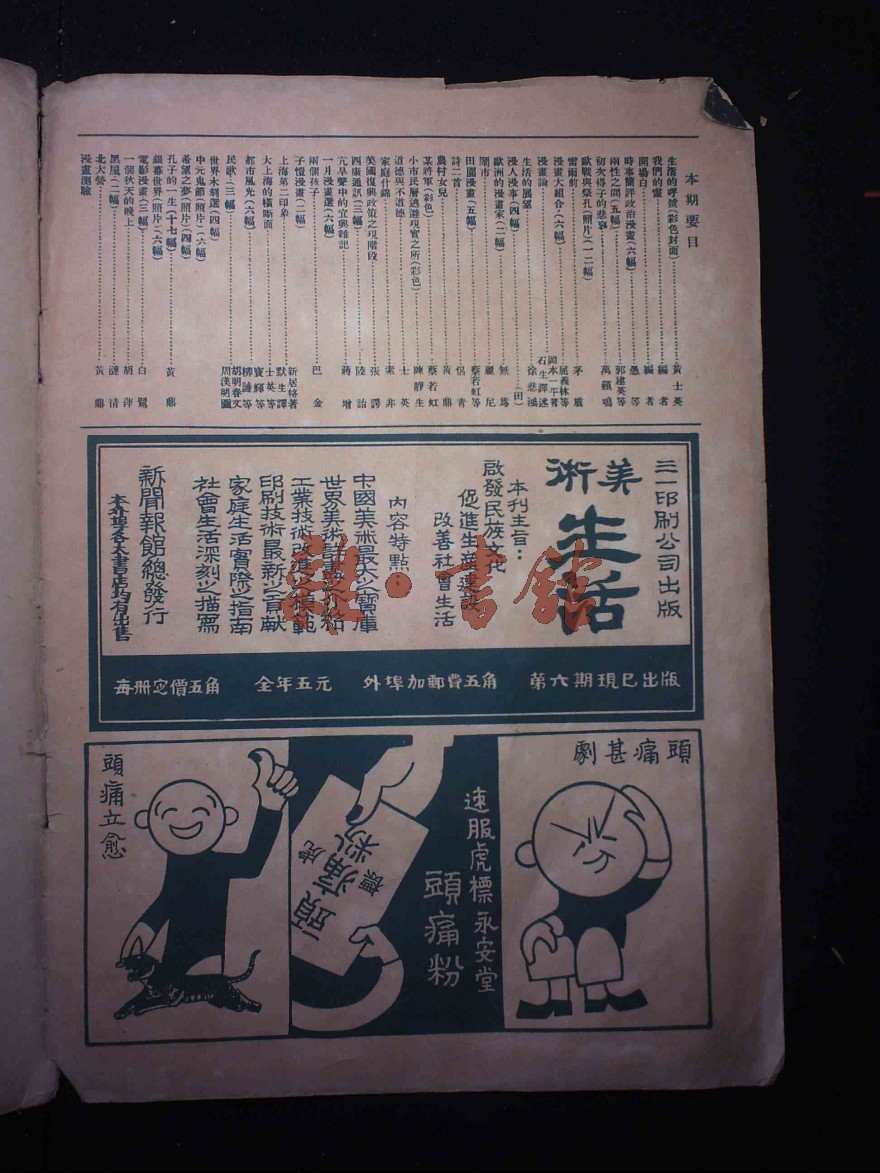 本期要目
生活的呼號(彩色封面)……黃士英
我們的話……編者
開場白……編者
時事簡評政治漫畫(六幅)……愚等
兩性之間(五幅)……郭建英等
初次得子的悲哀……萬籟鳴
歐戰與祭孔(照片)(一二幅)
雷雨前……茅盾
漫畫大組合(六幅)……屈義林等
漫畫論……岡本一平著 石生譯述
生活的展望……徐悲鴻
漫人漫事(四幅)……(田)無為
歐洲的漫畫家(二幅)
鬧市……麗尼
田園漫畫(五幅)……蔡若虹等
詩二首……侶青
農村女兒……黃鼎
某將軍(彩色)……蔡若虹
小市民層逃避現實之所(彩色)……陳靜生
道德與不道德……士英
家庭什錦……索非
美國復興政策之現階段……張諤
西康通訊(三幅)……陸詒
亢旱聲中的宜興雜記……蔣增
一月漫畫選(六幅)
兩個孩子……巴金
子愷漫畫(二幅)
上海第二印象……新居格著 默生譯
大上海的橫斷面……士英等
都市風光(六幅)……寶輝等 柳漣等
民歌(三幅)……胡明春文 周漢明圖
世界木刻選(四幅)
中元鬼節(照片)(六幅)
希望之夢(照片)(四幅)
孔子的一生(十七幅)……黃鼎
銀幕世界(照片)(六幅)
電影漫畫(三幅)……白鷺
一個秋天的晚上……胡萍
黑屋(二幅)……漣清
北大營……黃鼎
漫畫測驗
三一印刷公司出版
美術
生活
本刊主旨：
啟發民族文化
促進生產建設
改善社會生活
內容特點
中國美術最大之寶庫
世界美術詳盡之介紹
工業技術改進之模範
印刷技術最新之貢獻
家庭生活實際之指南
社會生活深刻之描寫
新聞報館總發行
本外埠各大書店均有出售
第六期現已出版 外埠加郵費五角 全年五元 每冊定價五角
頭痛甚劇
速服虎標永安堂
頭痛粉
虎標
頭痛粉
頭痛立愈